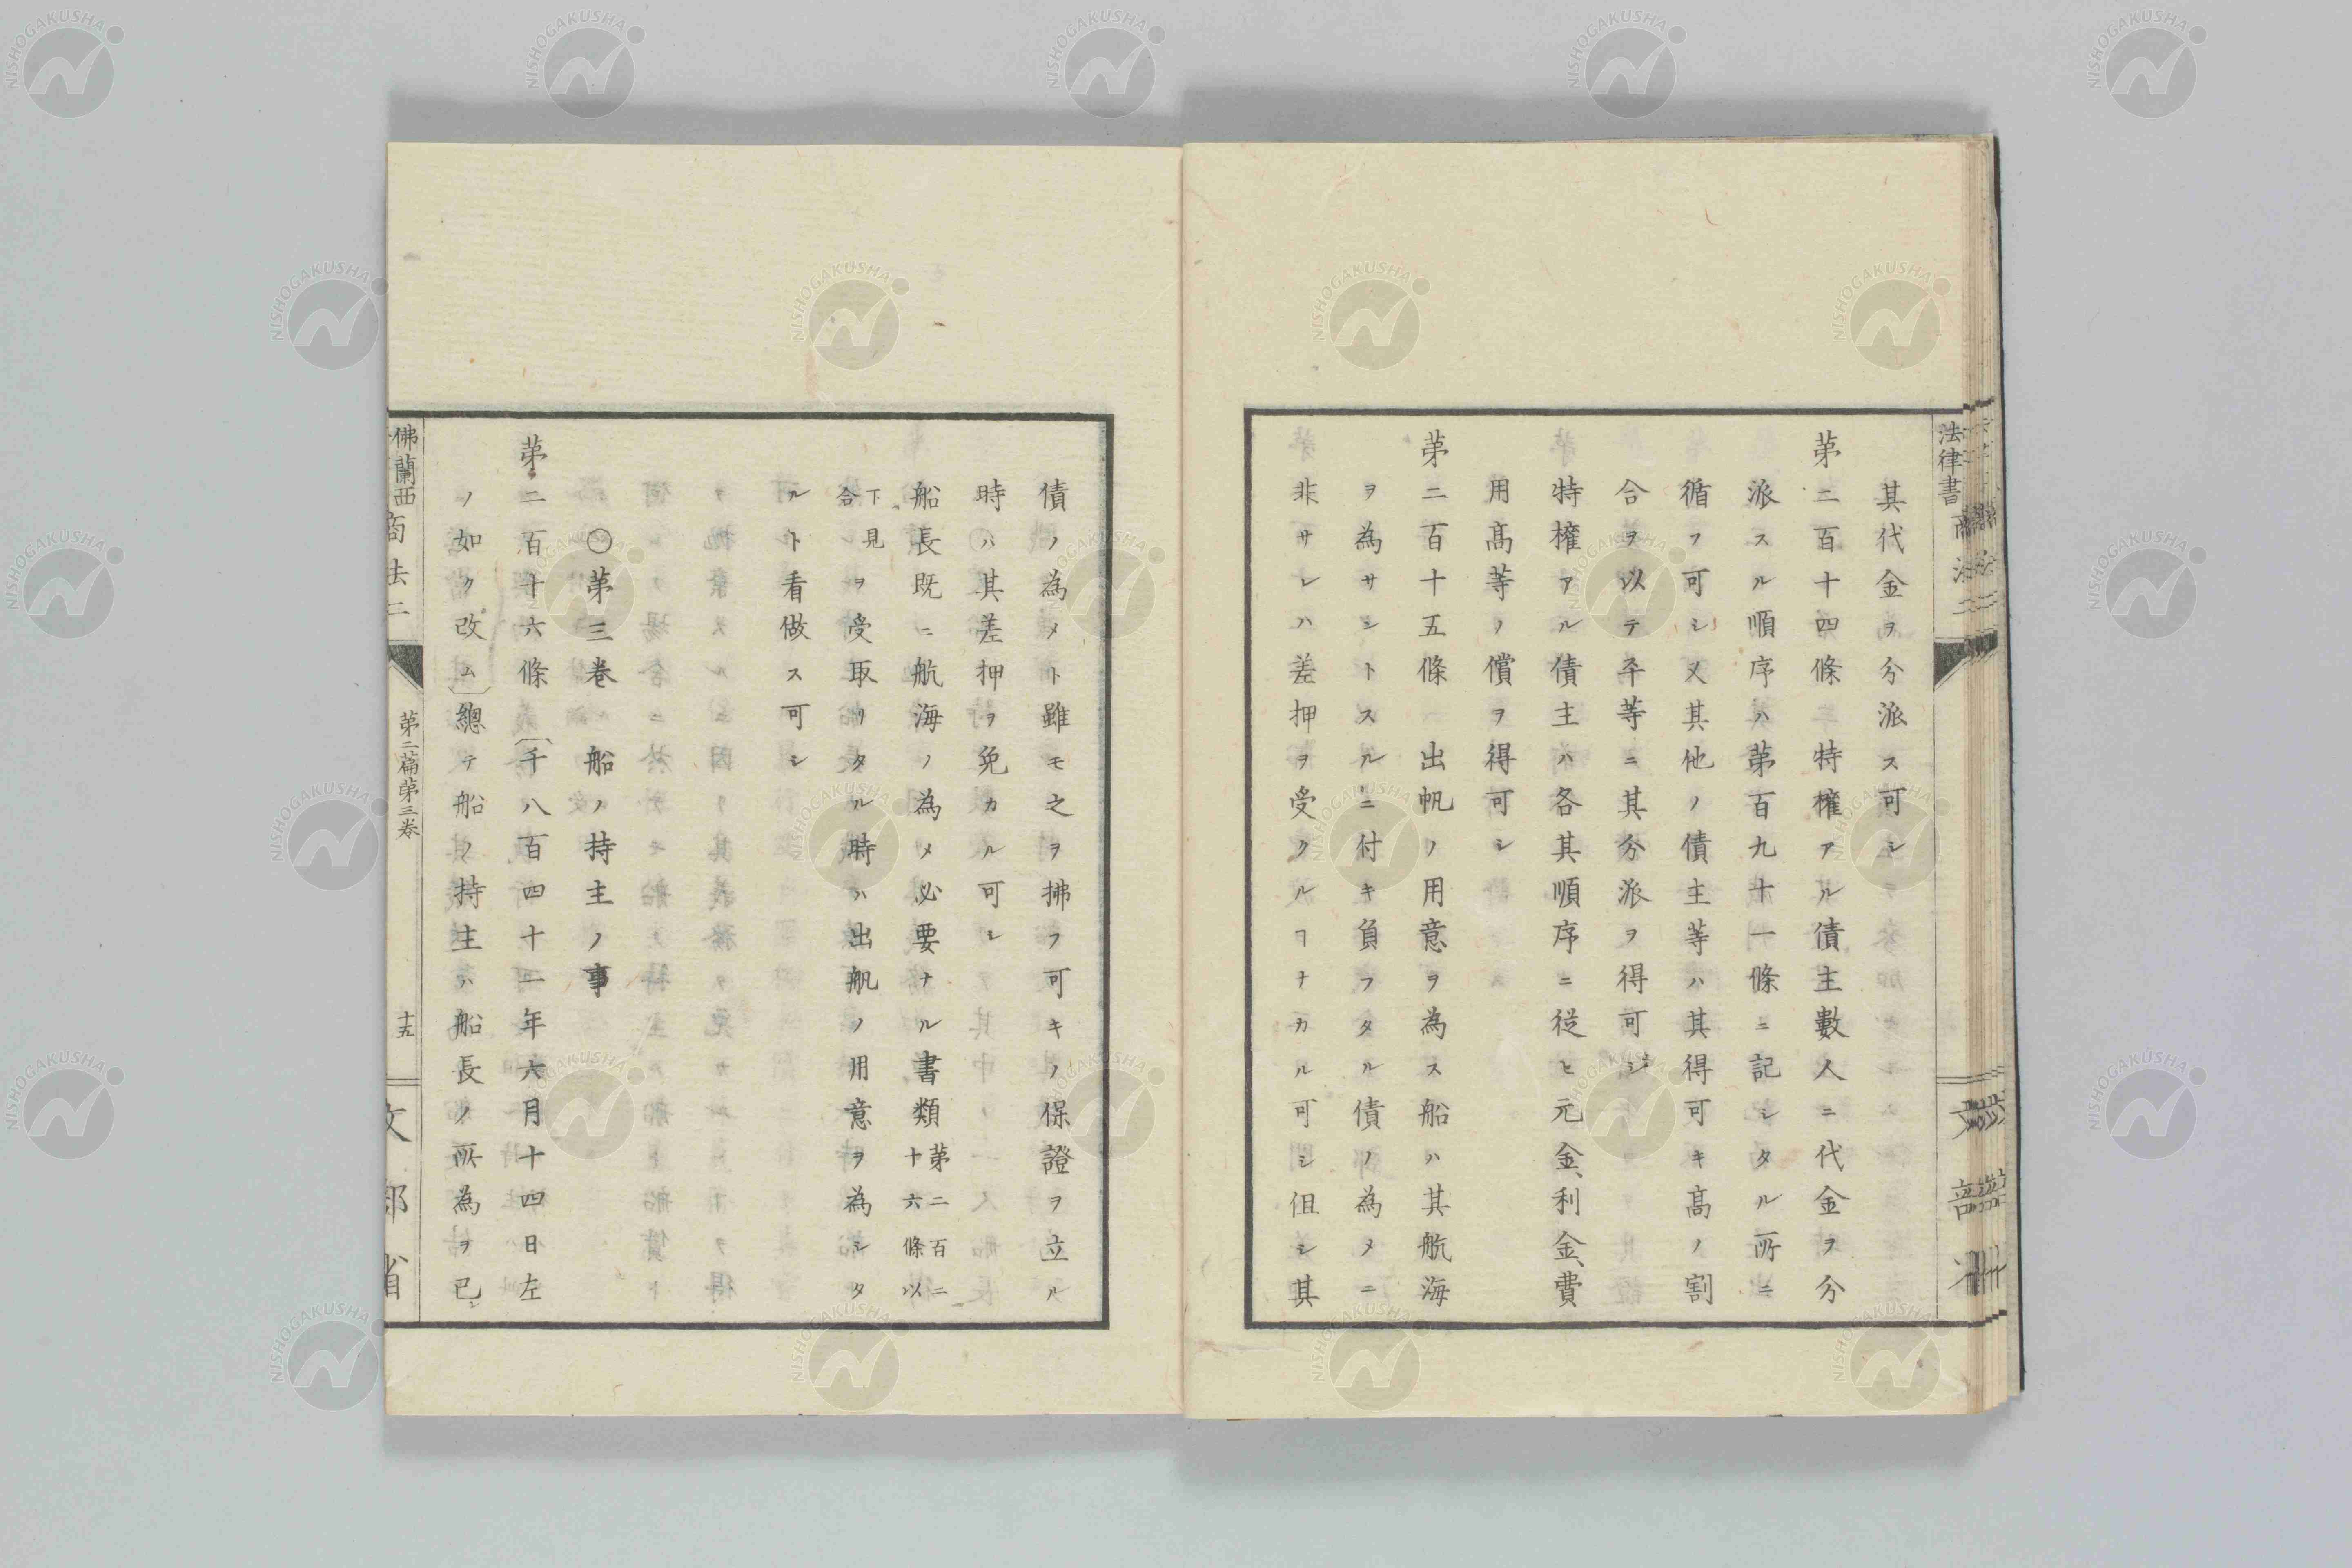 法律書
其代金ヲ分派ス可シ
第二百十四條 特權アル債主數人ニ代金ヲ分
派スル順序ハ第百九十一條ニ記シタル所ニ
循フ可シ又其他ノ債主等ハ其得可キ高ノ割
合ヲ以テ平等ニ其分派ヲ得可シ
特權アル債主ハ各其順序ニ從ヒ元金、利金、費
用高等ノ償ヲ得可シ
第二百十五條 出帆ノ用意ヲ為ス船ハ其航海
ヲ為サシトスルニ付キ負フタル債ノ為メニ
非サレハ差押ヲ受クルヿナカル可シ但シ其
債ノ為メト雖モ之ヲ拂フ可キノ保證ヲ立ル
時ハ其差押ヲ免カル可シ
船長既ニ航海ノ為メ必要ナル書類第二百二十六條以
下見合ヲ受取リタル時ハ出帆ノ用意ヲ為シタ
ルト看做ス可シ
〇第三巻 船ノ持主ノ事
第二百十六條〔千八百四十一年六月十四日左
ノ如ク改ム〕總テ船ノ持主ハ船長ノ所為ヲ已
佛蘭西商法二
第二篇第三巻
十五
文部省
NISHOGAKUSHA